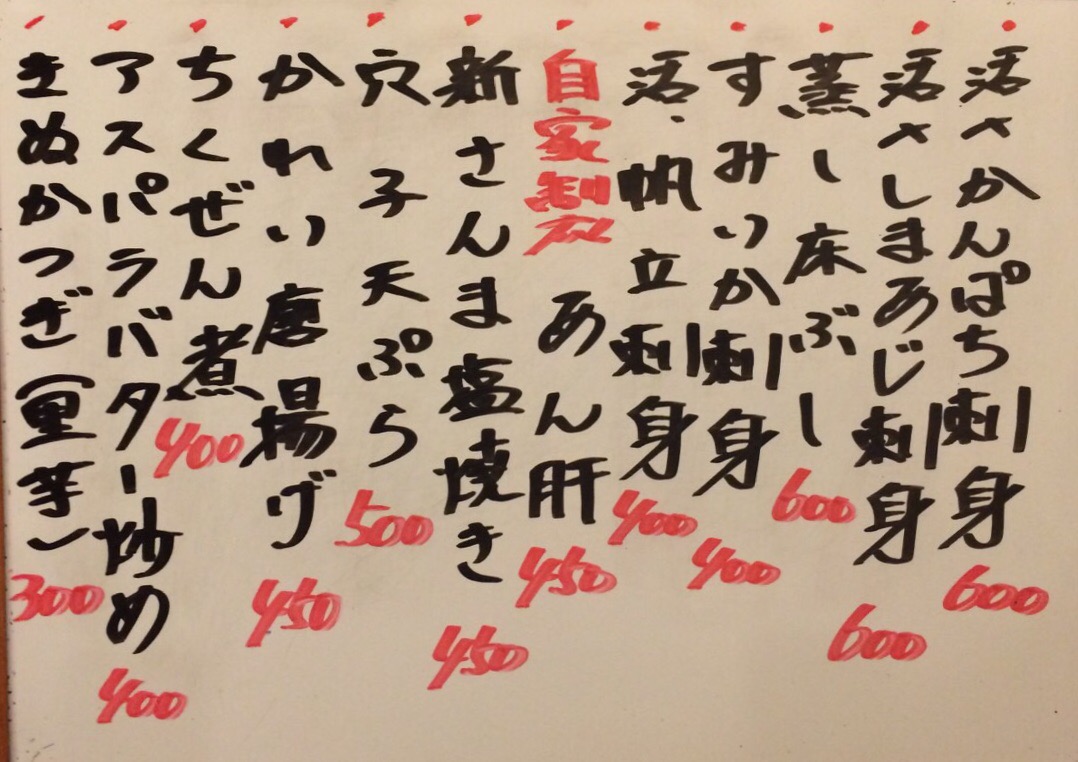 活〆かんぱち刺身 600
活〆しまあじ刺身 600
蒸し床ぶし 600
すみいか刺身 400
活、帆立刺身 400
自家製 あん肝 450
新さんま塩焼き 450
穴子天ぷら 500
かれい唐揚げ 450
ちくぜん煮 400
アスパラバター炒め 400
きぬかつぎ（里芋） 300